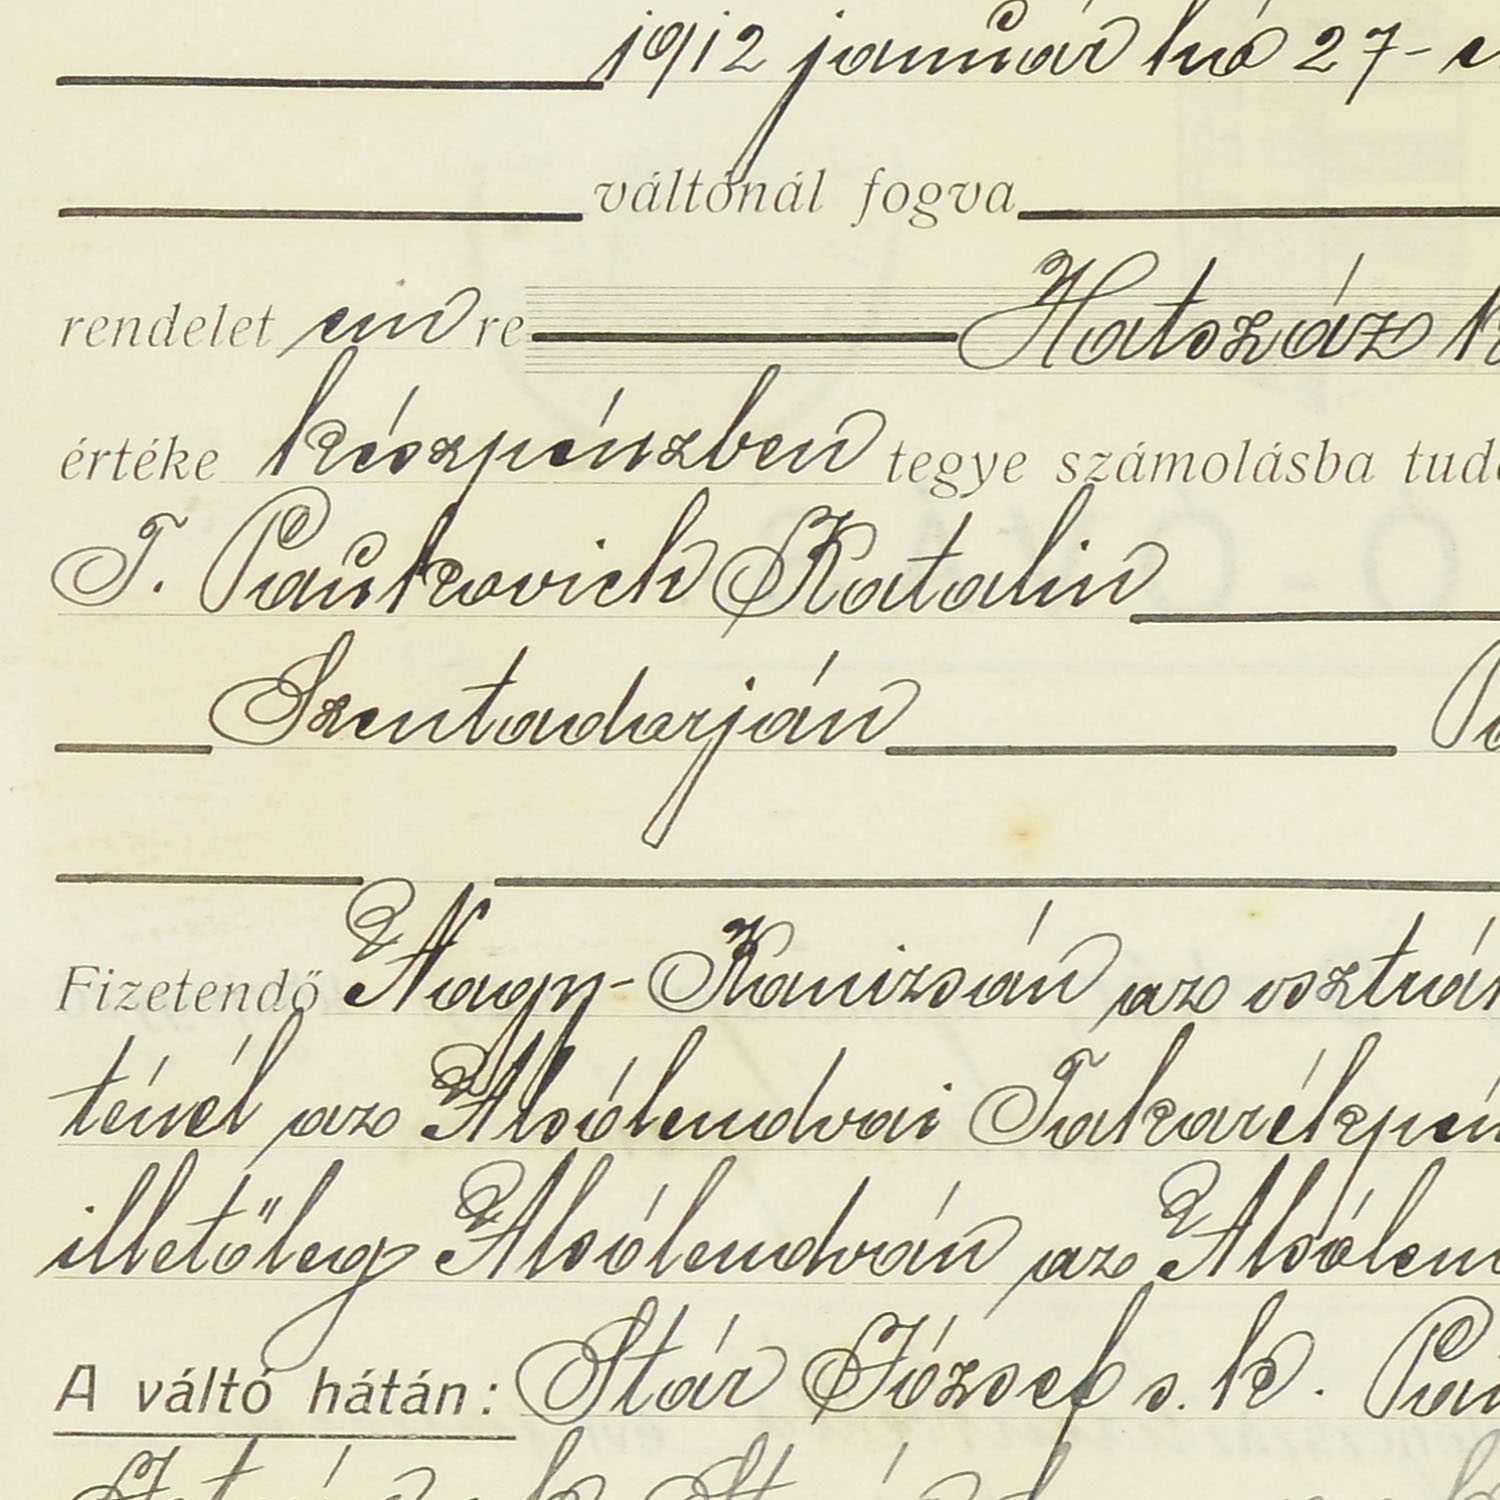 1912 január hó 27-
váltónál fogva
rendelet en re Hatszáz
értéke készpénzben tegye számolásba
T. Paukovich Katalin
Szentadorján
Fizetendő Nagy-Kanizsán az osztrák
ténél az Alsólendvai Takarékpén
illetőleg Alsólendván az Alsólen
A váltó hátán: Stár József s. k.